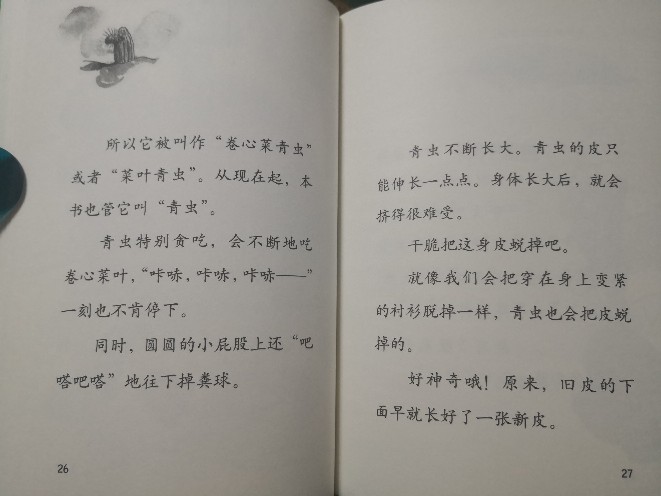 所以它被叫作“卷心菜青虫”
或者“菜叶青虫”。从现在起，本
书也管它叫“青虫”。
青虫特别贪吃，会不断地吃
卷心菜叶，“咔哧，咔哧，咔哧——”
一刻也不肯停下。
同时，圆圆的小屁股上还“吧
嗒吧嗒”地往下掉粪球。
26
青虫不断长大。青虫的皮只
能伸长一点点。身体长大后，就会
挤得很难受。
干脆把这身皮蜕掉吧。
就像我们会把穿在身上变紧
的衬衫脱掉一样，青虫也会把皮蜕
掉的。
好神奇哦！原来，旧皮的下
面早就长好了一张新皮。
27